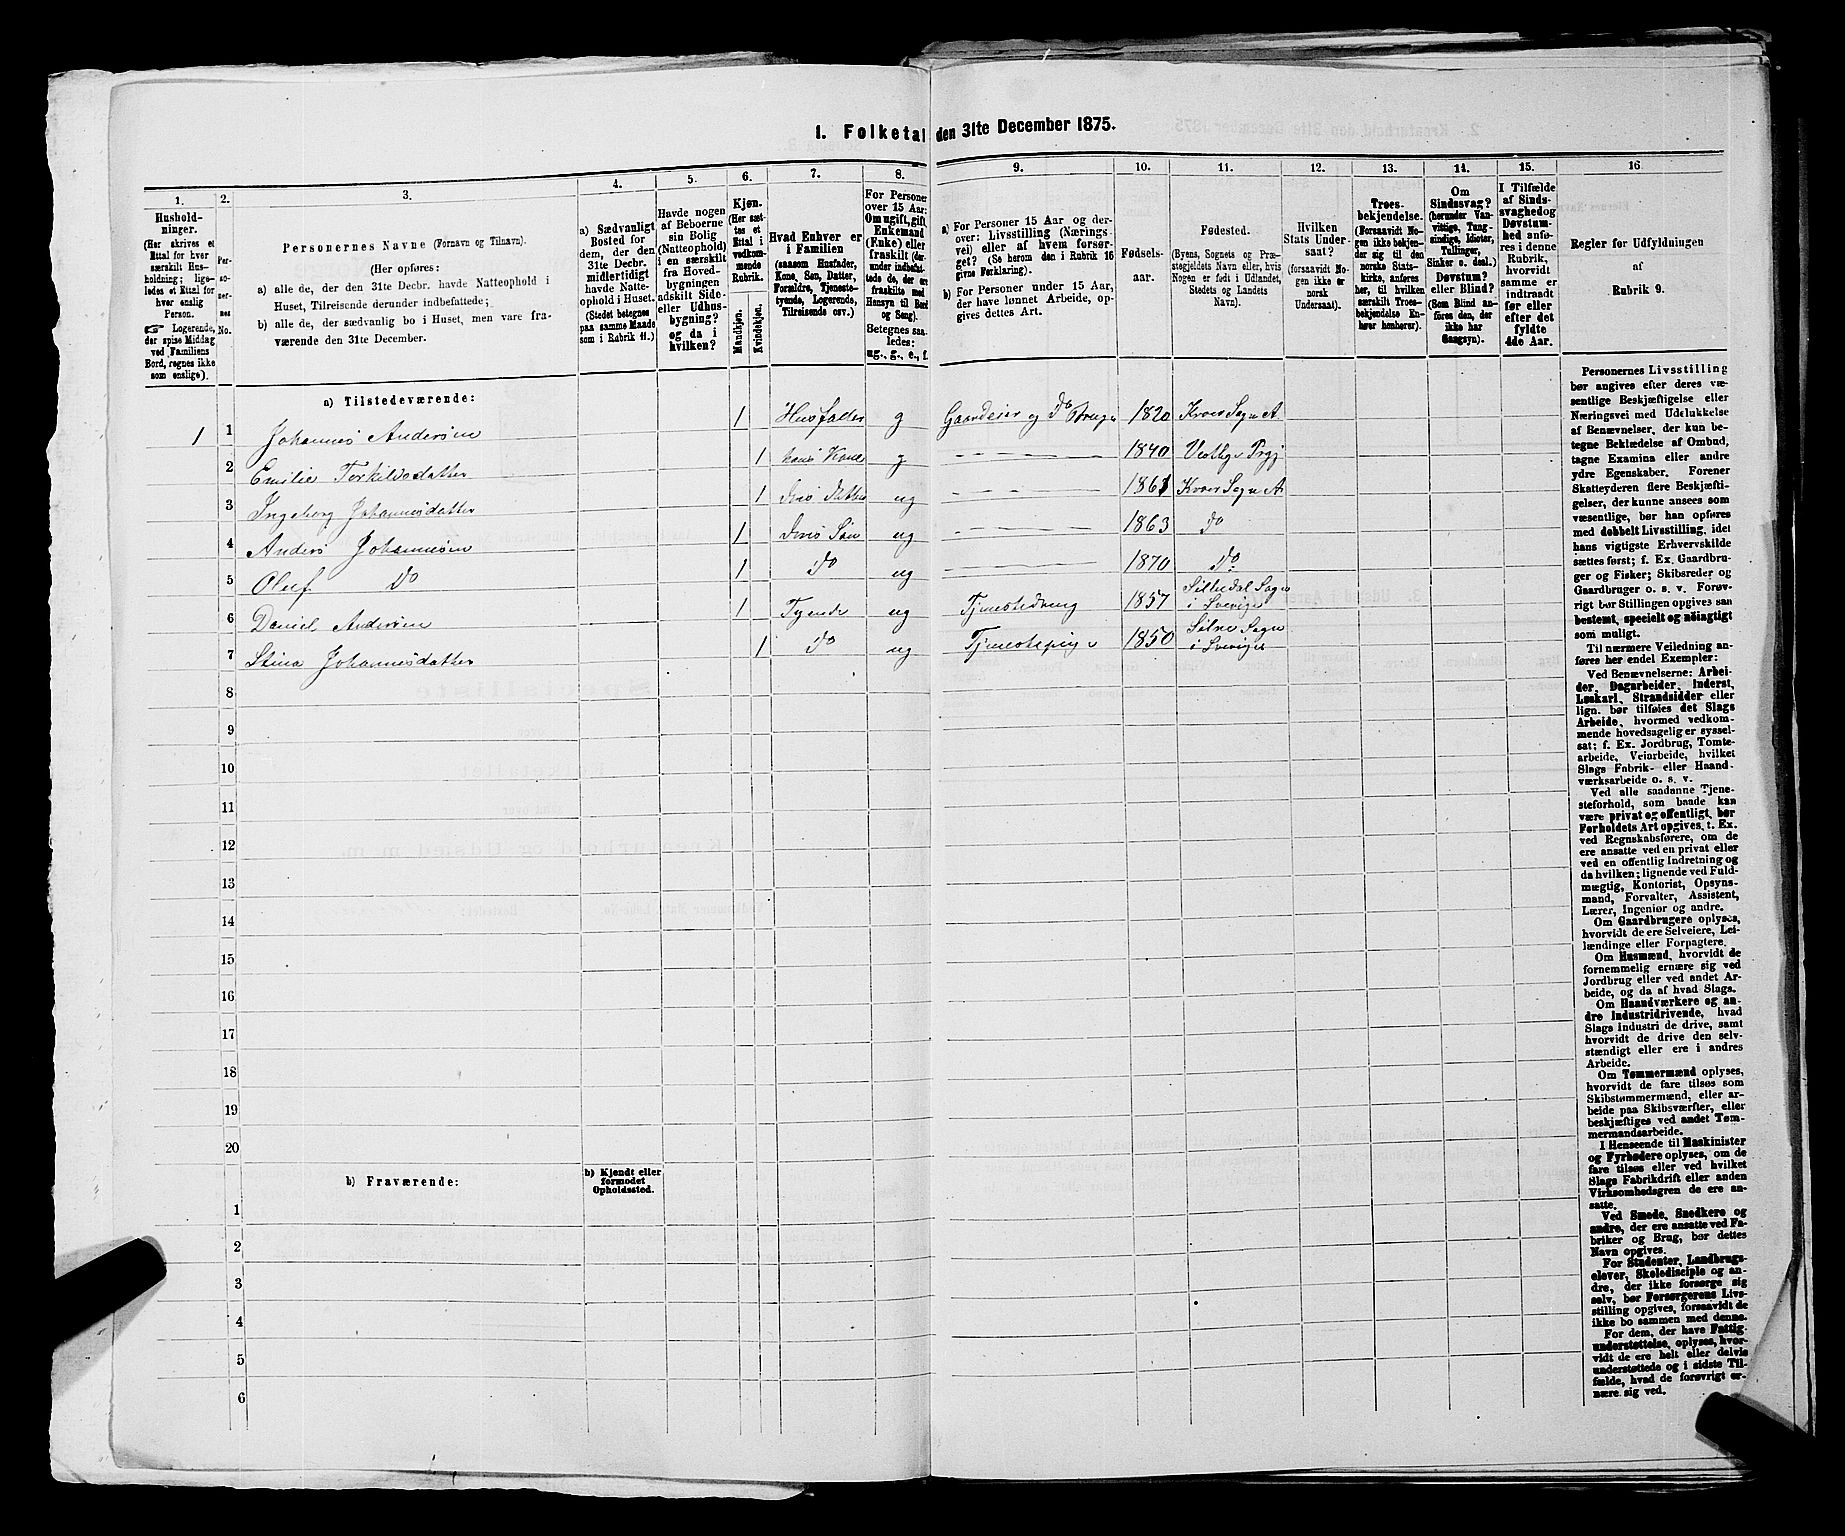 1. Folketal den 31te December 1875.
1.
Hushold-
ninger.
(Her skrives et
Ettal for hver
særskilt Hus-
holdning; lige-
ledes et Ettal for
hver enslig
Person.
☞ Logerende,
der spise Middag
ved Familiens
Bord, regnes ikke
som enslige).
2.
Per-
so-
ner-
nes
No.
3.
Personernes Navne (Fornavn og Tilnavn).
(Her opføres:
a) alle de, der den 31te Decbr. havde Natteophold i
Huset, Tilreisende derunder indbefattede;
b) alle de, der sædvanlig bo i Huset, men vare fra-
værende den 31te December.
4.
a) Sædvanligt
Bosted for
dem, der den
31te Decbr.
midlertidigt
havde Natte-
ophold i Huset.
(Stedet betegnes
paa samme Maade
som i Rubrik 11.)
5.
Havde nogen
af Beboerne
sin Bolig
(Natteophold)
i en særskilt
fra Hoved-
bygningen
adskilt Side-
eller Udhus-
bygning?
og da i
hvilken?
6.
Kjøn.
(Her sæt-
tes et
Ettal i
vedkom-
mende
Rubrik.
Mandkjøn.
Kvindekjøn.
7.
Hvad Enhver er
i Familien
(saasom Husfader,
Kone, Søn, Datter,
Forældre, Tjeneste-
tyende, Logerende,
Tilreisende osv.)
8.
For Personer
over 15 Aar:
Om ugift, gift,
Enkemand
(Enke) eller
fraskilt (der-
under indbefat-
tede de, der ere
fraskilte med
Hensyn til Bord
og Seng).
Betegnes saa-
ledes:
ug., g., e., f.
9.
a) For Personer 15 Aar og der-
over: Livsstilling (Nærings-
vei) eller af hvem forsør-
get? (Se herom den i Rubrik 16
givne Forklaring).
b) For Personer under 15 Aar,
der have lønnet Arbeide, op-
gives dettes Art.
10.
Fødsels-
aar.
11.
Fødested.
(Byens, Sognets og Præ-
stegjeldets Navn eller, hvis
Nogen er født i Udlandet,
Stedets og Landets
Navn).
12.
Hvilken
Stats Under-
saat?
(forsaavidt No-
gen ikke er
norsk
Undersaat).
13.
Troes-
bekjendelse.
(Forsaavidt No-
gen ikke bekjen-
der sig til den
norske Stats-
kirke, anføres
her, til hvilken
særskilt Troes-
bekjendelse En-
hver henhører).
14.
Om
Sindssvag?
(herunder Van-
vittige, Tung-
sindige, Idioter,
Tullinger,
Sinker o. desl.)
Døvstum?
eller Blind?
(Som Blind an-
føres den, der
ikke har
Gangsyn).
15.
I Tilfælde
af Sinds-
svaghed og
Døvstum-
hed anfø-
res i denne
Rubrik,
hvorvidt
samme er
indtraadt
før eller
efter det
fyldte
4de Aar.
16
Regler for Udfyldningen
af
Rubrik 9.
a) Tilstedeværende:
1 1 Johannes Andersen 1 Husfader g Gaardeier og do Bruger 1820 Kroer Sogn A
2 Emilie Torkildsdatter 1 hans Kone g 1840 Vestby Prgj
3 Ingeborg Johannesdatter 1 deres Datter ug 1861 Kroer Sogn A
4 Anders Johannesen 1 deres Søn ug 1863 do
5 Oluf do 1 do ug 1870 do
6 Daniel Andersen 1 Tyende ug Tjenestedreng 1857 Silledal Sogn
i Sverige
7 Stina Johannesdatter 1 do ug Tjenestepige 1850 Sogn
i Sverige
8
9
10
11
12
13
14
15
16
17
18
19
20
b) Fraværende:
b) Kjendt eller
formodet
Opholdssted.
1
2
3
4
5
6
Personernes Livsstilling
bør angives efter deres væ-
sentlige Beskjæftigelse eller
Næringsvei med Udelukkelse
af Benævnelser, der kun be-
tegne Beklædelse af Ombud,
tagne Examina eller andre
ydre Egenskaber. Forener
Skatteyderen flere Beskjæfti-
gelser, der kunne ansees som
væsentlige, bør han opføres
med dobbelt Livsstilling, idet
hans vigtigste Erhvervskilde
sættes først; f. Ex. Gaardbru-
ger og Fisker; Skibsreder og
Gaardbruger o. s. v. Forøv-
rigt bør Stillingen opgives saa
bestemt, specielt og nøiagtigt
som muligt.
Til nærmere Veiledning an-
føres her endel Exempler:
Ved Benævnelserne: Arbei-
der, Dagarbeider, Inderst,
Løskarl, Strandsidder eller
lign. bør tilføies det Slags
Arbeide, hvormed vedkom-
mende hovedsagelig er syssel-
sat; f. Ex. Jordbrug, Tomte-
arbeide, Veiarbeide, hvilket
Slags Fabrik- eller Haand-
værksarbeide o. s. v.
Ved alle saadanne Tjene-
steforhold, som baade kan
være privat og offentligt, bør
Forholdets Art opgives, t. Ex.
ved Regnskabsførere, om de
ere ansatte ved en privat eller
ved en offentlig Indretning og
da hvilken; lignende ved Fuld-
mægtig, Kontorist, Opsyns-
mand, Forvalter, Assistent,
Lærer, Ingeniør og andre.
Om Gaardbrugere oplyses,
hvorvidt de ere Selveiere, Lei-
lændinge eller Forpagtere.
Om Husmænd, hvorvidt de
fornemmelig ernære sig ved
Jordbrug eller ved andet Ar-
beide, og da af hvad Slags.
Om Haandværkere og an-
dre Industridrivende, hvad
Slags Industri de drive, samt
hvorvidt de drive den selv-
stændigt eller ere i andres
Arbeide.
Om Tømmermænd oplyses,
hvorvidt de fare tilsøs som
Skibstømmermænd, eller ar-
beide paa Skibsværfter, eller
beskjæftiges ved andet Tøm-
mermandsarbeide.
I Henseende til Maskinister
og Fyrbødere oplyses, om de
fare tilsøs eller ved hvilket
Slags Fabrikdrift eller anden
Virksomhedsgren de ere an-
satte.
Ved Smede, Snedkere og
andre, der ere ansatte ved Fa-
briker og Brug, bør dettes
Navn opgives.
For Studenter, Landbrugs-
elever, Skoledisciple og an-
dre, der ikke forsørge sig
selv, bør Forsørgerens Livs-
stilling opgives, forsaavidt de
ikke bo sammen med denne.
For dem, der have Fattig-
understøttelse, oplyses, hvor-
vidt de ere helt eller delvis
understøttede og i sidste Til-
fælde, hvad de forøvrigt er-
nære sig ved.